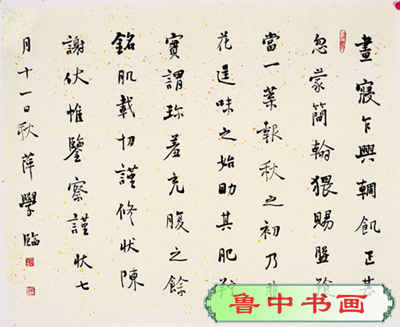 晝寢乍興輖飢正甚
忽蒙簡翰猥賜盤飧
當一葉報秋之初乃韭
花逞味之始助其肥羜
實謂珍羞充腹之餘
銘肌載切謹修狀陳
謝伏惟鑒察謹狀七
月十一日秋萍學臨
魯中书画